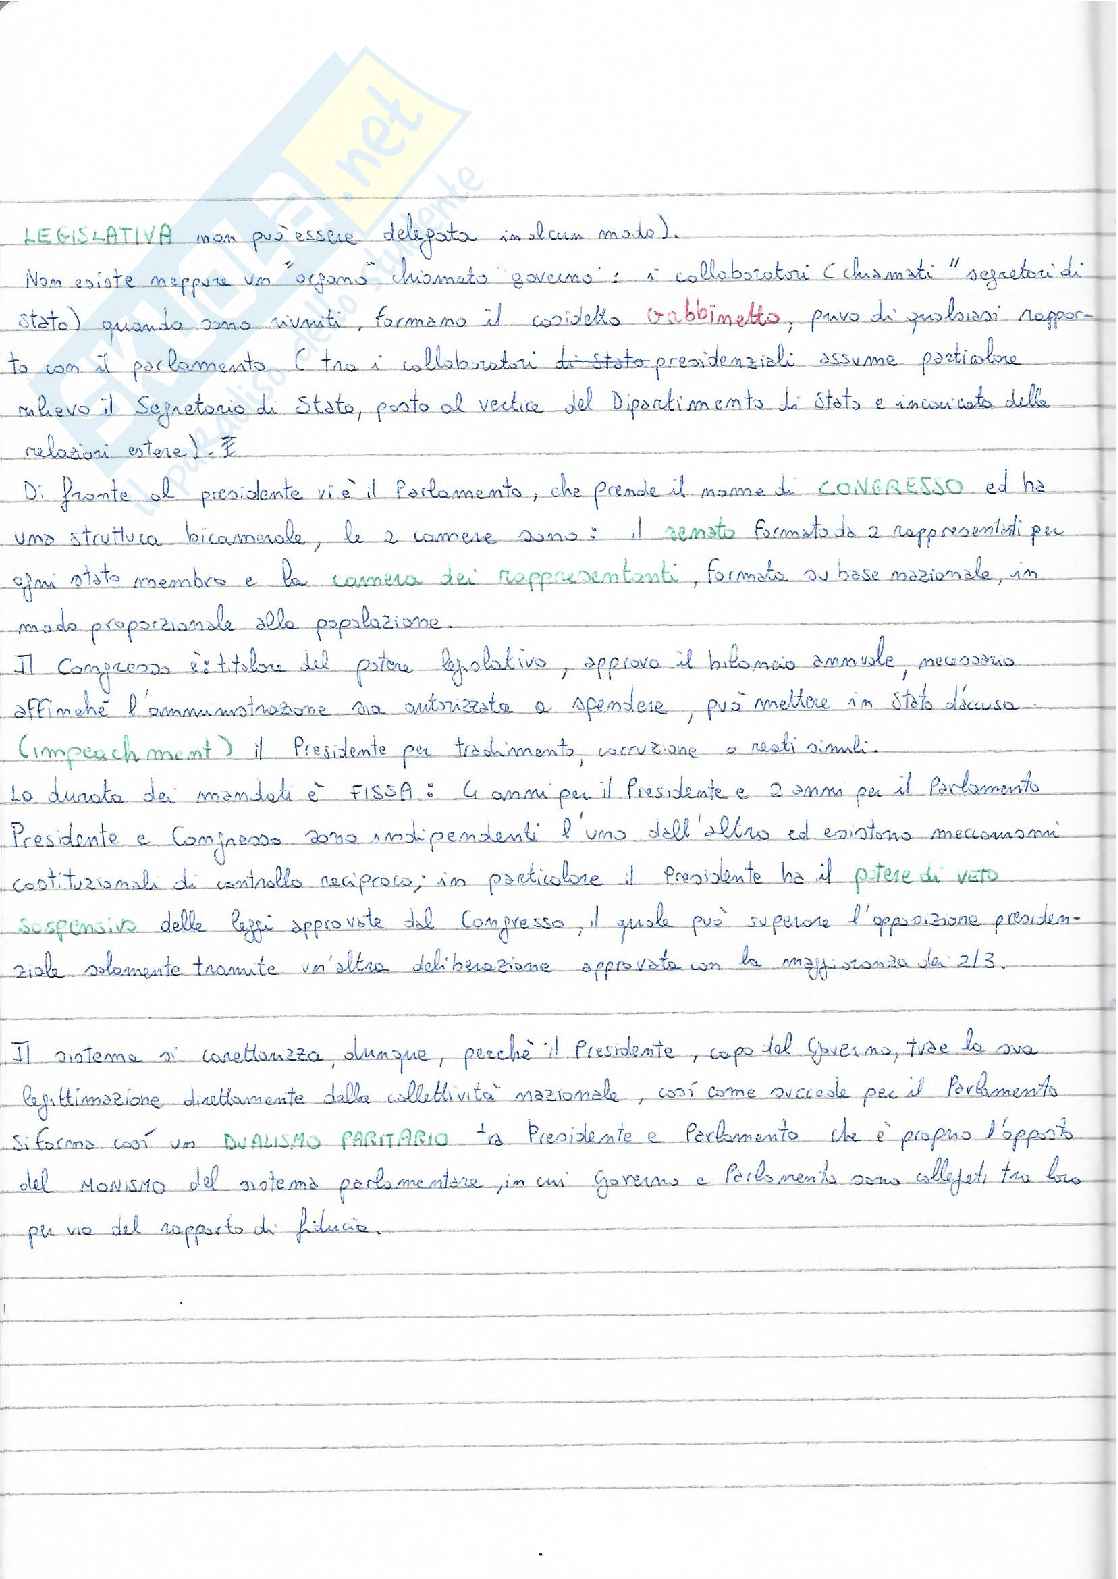 LEGISLATIVA non può essere delegata in alcun modo).
Non esiste neppure un "organo" chiamato governo: i collaboratori (chiamati "segretari di
Stato) quando sono riuniti, formano il cosidetto Gabbinetto, privo di qualsiasi rappor-
to con il parlamento (tra i collaboratori di Stato presidenziali assume particolare
rilievo il Segretario di Stato, posto al vertice del Dipartimento di Stato e incaricato delle
relazioni estere).
Di fronte al presidente vi è il Parlamento, che prende il nome di CONGRESSO ed ha
una struttura bicamerale, le 2 camere sono: il senato formato da 2 rappresentati per
ogni stato membro e la camera dei rappresentanti, formata su base nazionale, in
modo proporzionale alla popolazione.
Il Congresso è: titolare del potere legislativo, approva il bilancio annuale, necessario
affinché l'amministrazione sia autorizzata a spendere, può mettere in stato d'accusa
(impeachment) il Presidente per tradimento, corruzione o reati simili.
La durata dei mandati è FISSA: 4 anni per il Presidente e 2 anni per il Parlamento
Presidente e Congresso sono indipendenti l'uno dall'altro ed esistono meccanismi
costituzionali di controllo reciproco; in particolare il Presidente ha il potere di VETO
sospensivo delle leggi approvate dal Congresso, il quale può superare l'opposizione presiden-
ziale solamente tramite un'altra deliberazione approvata con la maggioranza dei 2/3.
Il sistema si caratterizza, dunque, perchè il Presidente, capo del Governo, trae la sua
legittimazione direttamente dalla collettività nazionale, così come succede per il Parlamento
Si forma così un DUALISMO PARITARIO tra Presidente e Parlamento che è proprio l'opposto
del MONISMO del sistema parlamentare, in cui Governo e Parlamento sono collegati tra loro
per via del rapporto di fiducia.
Skuola.net
il paradiso dello studente